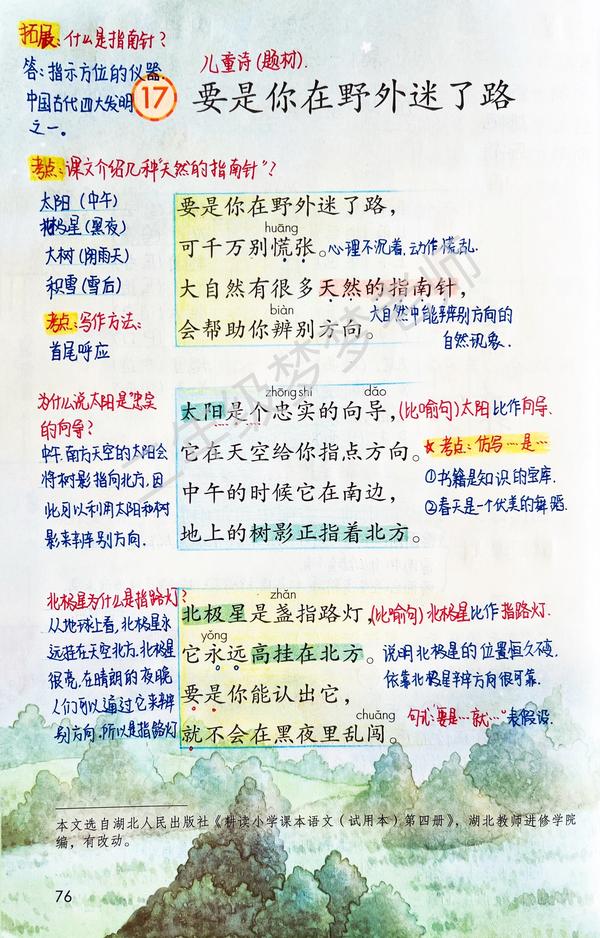 拓展：什么是指南针？
答：指示方位的仪器，
中国古代四大发明
之一。
儿童诗(题材).
17
要是你在野外迷了路
考点：课文介绍几种"天然的指南针"？
太阳（中午）
北极星（黑夜）
大树（阴雨天）
积雪（雪后）
考点：写作方法：
首尾呼应
要是你在野外迷了路，
huāng
可千万别慌张。心理不沉着，动作慌乱.
大自然有很多天然的指南针，
biàn
会帮助你辨别方向。
大自然中能辨别方向的
自然现象.
为什么说太阳是"忠实
的向导？
中午,南方天空的太阳会
将树影指向北方,因
此可以利用太阳和树
影来辨别方向.
zhōng shí dǎo
太阳是个忠实的向导，(比喻句)太阳比作向导.
它在天空给你指点方向。
★考点：仿写…是…
中午的时候它在南边，
①书籍是知识的宝库.
②春天是一个优美的舞蹈.
地上的树影正指着北方。
北极星为什么是指路灯？
从地球上看,北极星永
远挂在天空北方.北极星
很亮,在晴朗的夜晚
人们可以通过它来辨
别方向.所以是指路灯
zhǎn
北极星是盏指路灯，(比喻句)北极星比作指路灯.
yǒng
它永远高挂在北方。
说明北极星的位置恒久不变.
依靠北极星辨方向很可靠.
要是你能认出它，
chuǎng
句式:"要是…就…"表假设.
就不会在黑夜里乱闯。
本文选自湖北人民出版社《耕读小学课本语文（试用本）第四册》，湖北教师进修学院
编，有改动。
76
二年级梦梦老师